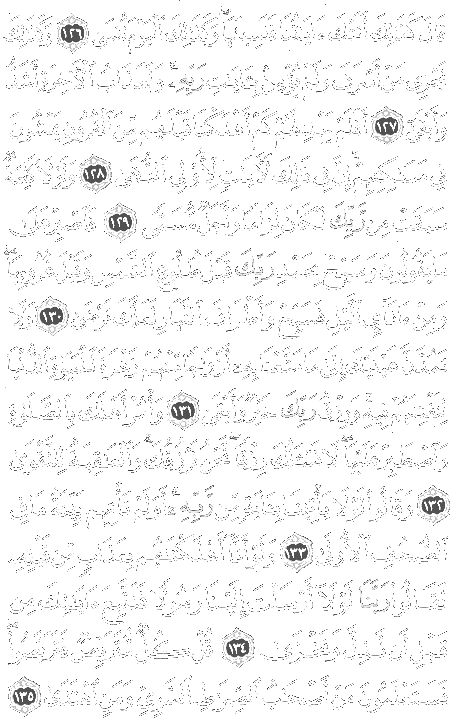 قَالَ كَذَٰلِكَ أَتَتْكَ ءَايَٰتُنَا فَنَسِيتَهَا ۖ وَكَذَٰلِكَ ٱلْيَوْمَ تُنسَىٰ ١٢٦ وَكَذَٰلِكَ
نَجْزِى مَنْ أَسْرَفَ وَلَمْ يُؤْمِنۢ بِـَٔايَٰتِ رَبِّهِۦ ۚ وَلَعَذَابُ ٱلْـَٔاخِرَةِ أَشَدُّ
وَأَبْقَىٰٓ ١٢٧ أَفَلَمْ يَهْدِ لَهُمْ كَمْ أَهْلَكْنَا قَبْلَهُم مِّنَ ٱلْقُرُونِ يَمْشُونَ
فِى مَسَٰكِنِهِمْ ۗ إِنَّ فِى ذَٰلِكَ لَـَٔايَٰتٍ لِّأُو۟لِى ٱلنُّهَىٰ ١٢٨ وَلَوْلَا كَلِمَةٌ
سَبَقَتْ مِن رَّبِّكَ لَكَانَ لِزَامًا وَأَجَلٌ مُّسَمًّى ١٢٩ فَٱصْبِرْ عَلَىٰ
مَا يَقُولُونَ وَسَبِّحْ بِحَمْدِ رَبِّكَ قَبْلَ طُلُوعِ ٱلشَّمْسِ وَقَبْلَ غُرُوبِهَا ۖ
وَمِنْ ءَانَآئِ ٱلَّيْلِ فَسَبِّحْ وَأَطْرَافَ ٱلنَّهَارِ لَعَلَّكَ تَرْضَىٰ ١٣٠ وَلَا
تَمُدَّنَّ عَيْنَيْكَ إِلَىٰ مَا مَتَّعْنَا بِهِۦٓ أَزْوَٰجًا مِّنْهُمْ زَهْرَةَ ٱلْحَيَوٰةِ ٱلدُّنْيَا
لِنَفْتِنَهُمْ فِيهِ ۚ وَرِزْقُ رَبِّكَ خَيْرٌ وَأَبْقَىٰ ١٣١ وَأْمُرْ أَهْلَكَ بِٱلصَّلَوٰةِ
وَٱصْطَبِرْ عَلَيْهَا ۖ لَا نَسْـَٔلُكَ رِزْقًا ۖ نَّحْنُ نَرْزُقُكَ ۗ وَٱلْعَٰقِبَةُ لِلتَّقْوَىٰ
١٣٢ وَقَالُوا۟ لَوْلَا يَأْتِينَا بِـَٔايَةٍ مِّن رَّبِّهِۦٓ ۚ أَوَلَمْ تَأْتِهِم بَيِّنَةُ مَا فِى
ٱلصُّحُفِ ٱلْأُولَىٰ ١٣٣ وَلَوْ أَنَّآ أَهْلَكْنَٰهُم بِعَذَابٍ مِّن قَبْلِهِۦ
لَقَالُوا۟ رَبَّنَا لَوْلَآ أَرْسَلْتَ إِلَيْنَا رَسُولًا فَنَتَّبِعَ ءَايَٰتِكَ مِن
قَبْلِ أَن نَّذِلَّ وَنَخْزَىٰ ١٣٤ قُلْ كُلٌّ مُّتَرَبِّصٌ فَتَرَبَّصُوا۟ ۖ
فَسَتَعْلَمُونَ مَنْ أَصْحَٰبُ ٱلصِّرَٰطِ ٱلسَّوِىِّ وَمَنِ ٱهْتَدَىٰ ١٣٥